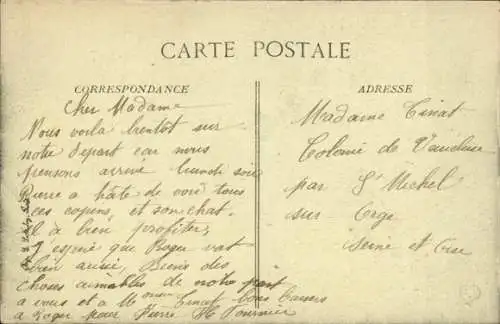 CARTE POSTALE
CORRESPONDANCE
Cher Madame
Nous voila bientot sur
notre départ car nous
pensons arrivé lundi soir
Pierre a hâte de voir tous
ces copins, et son chat.
Il a bien profiter,
J'espère que Roger vat
bien aussi, Biens des
choses aimables de notre part
a vous et a Monsieur Tinat bons baisers
a Roger pour Pierre H Fournier
ADRESSE
Madame Tinat
Colonie de Vaucluse
par St Michel
sur Orge
Seine et Oise